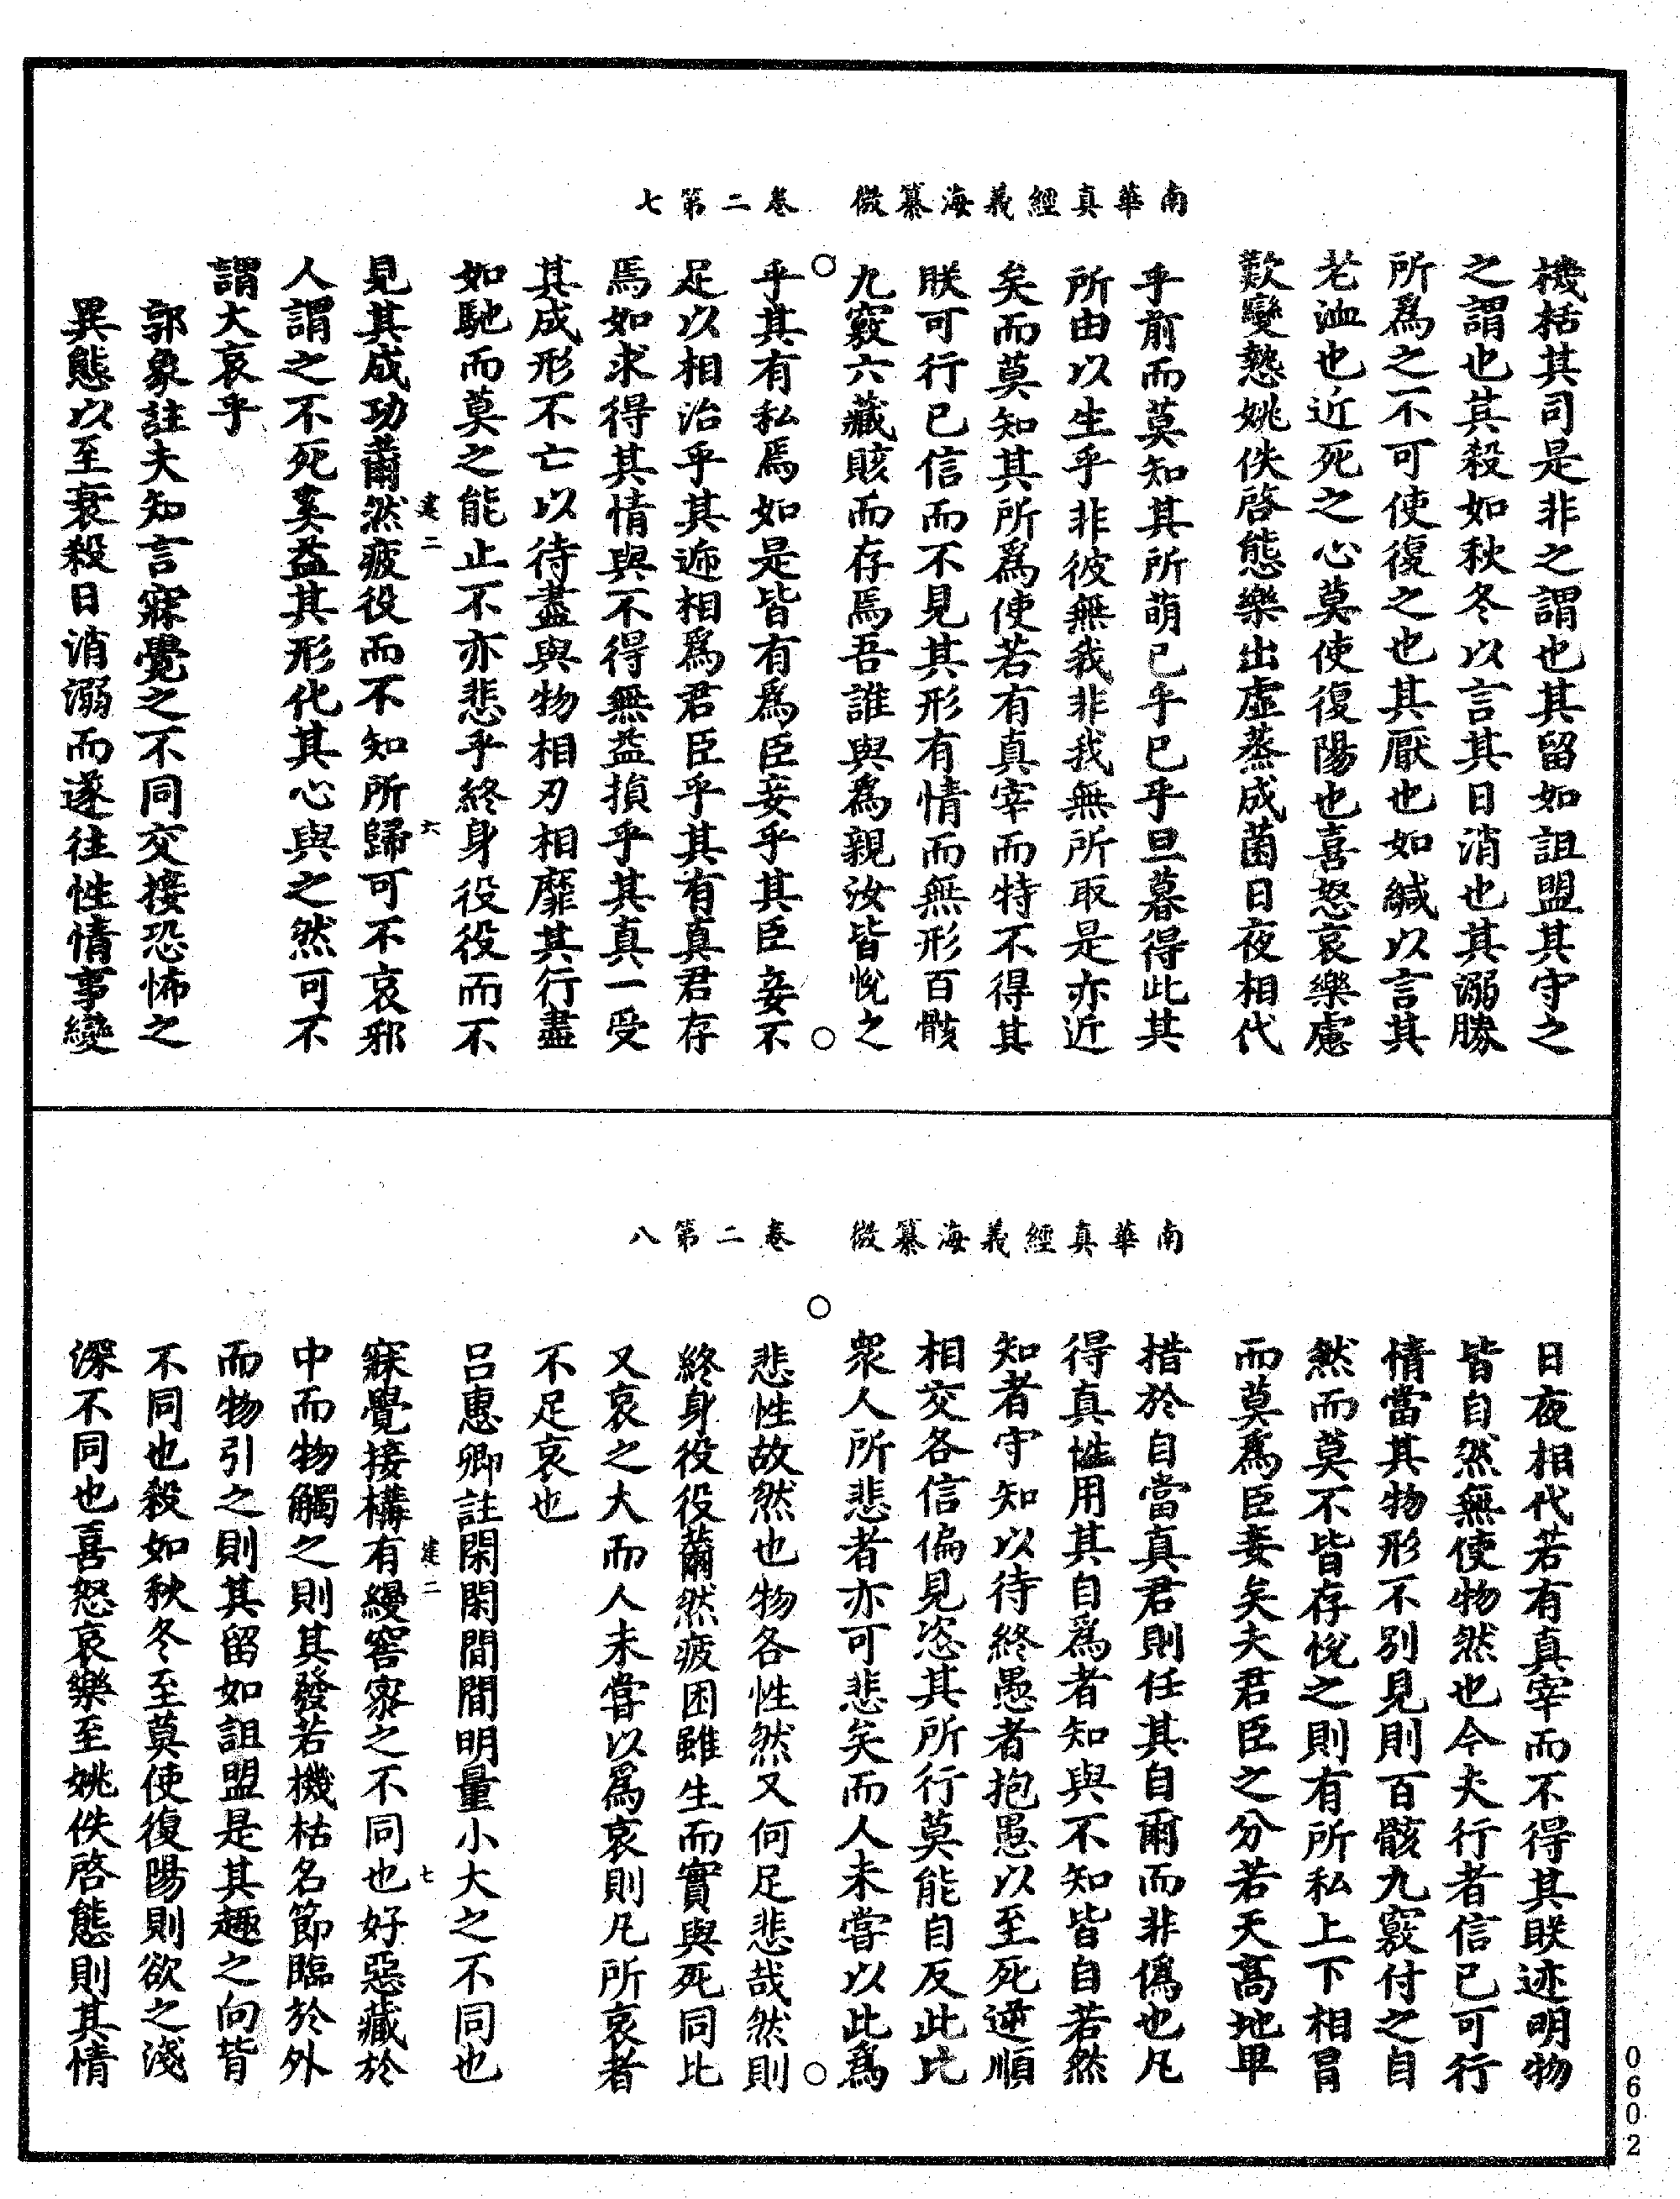 南華真經義海纂微　卷二第七
機栝其司是非之謂也其留如詛盟其守之
之謂也其殺如秋冬以言其日消也其溺勝
所爲之不可使復之也其厭也如緘以言其
老洫也近死之心莫使復陽也喜怒哀樂慮
歎變慹姚佚啓態樂出虛蒸成菌日夜相代
乎前而莫知其所萌已乎已乎旦暮得此其
所由以生乎非彼無我非我無所取是亦近
矣而莫知其所爲使若有真宰而特不得其
朕可行已信而不見其形有情而無形百骸
九竅六藏賅而存焉吾誰與爲親汝皆悅之
乎其有私焉如是皆有爲臣妾乎其臣妾不
足以相治乎其遞相爲君臣乎其有真君存
焉如求得其情與不得無益損乎其真一受
其成形不亡以待盡與物相刃相靡其行盡
如馳而莫之能止不亦悲乎終身役役而不
建二　六
見其成功薾然疲役而不知所歸可不哀邪
人謂之不死奚益其形化其心與之然可不
謂大哀乎
郭象註夫知言寐覺之不同交接恐怖之
異態以至衰殺日消溺而遂往性情事變
南華真經義海纂微　卷二第八
日夜相代若有真宰而不得其朕迹明物
皆自然無使物然也今夫行者信已可行
情當其物形不別見則百骸九竅付之自
然而莫不皆存悅之則有所私上下相冒
而莫爲臣妾矣夫君臣之分若天高地卑
措於自當真君則任其自爾而非僞也凡
得真性用其自爲者知與不知皆自若然
知者守知以待終愚者抱愚以至死逆順
相交各信偏見恣其所行莫能自反此比
衆人所悲者亦可悲矣而人未嘗以此爲
悲性故然也物各性然又何足悲哉然則
終身役役薾然疲困雖生而實與死同比
又哀之大而人未嘗以爲哀則凡所哀者
不足哀也
呂惠卿註閑閑間間明量小大之不同也
建二　七
寐覺接構有縵窖密之不同也好惡藏於
中而物觸之則其發若機栝名節臨於外
而物引之則其留如詛盟是其趣之向背
不同也殺如秋冬至莫使復陽則欲之淺
深不同也喜怒哀樂至姚佚啓態則其情
0602